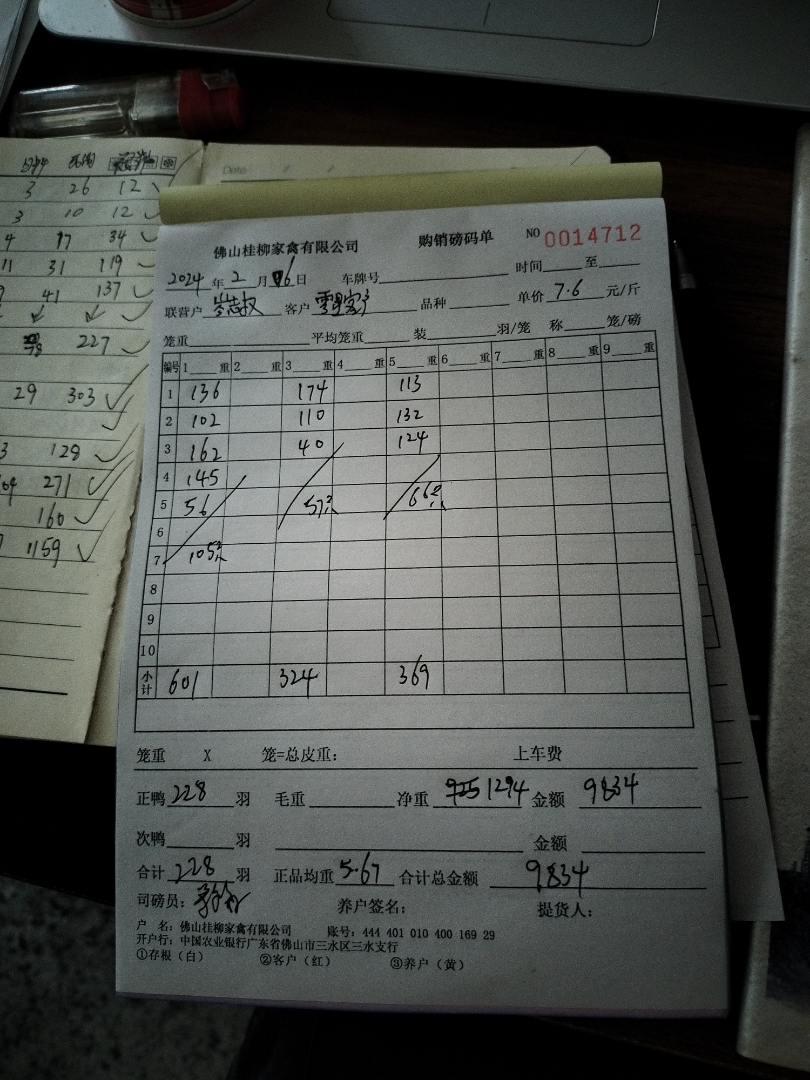 Date / /
3 26 12
3 10 12
4 17 34
11 31 119
9 41 137
227
29 303
3 128
104 271
160
7 1159
佛山桂柳家禽有限公司 购销磅码单 NO 0014712
2024 年 2 月 16 日 车牌号 时间 至
联营户 岑志叔 客户 品种 单价 7.6 元/斤
笼重 平均笼重 装 羽/笼 称 笼/磅
编号 1 重 2 重 3 重 4 重 5 重 6 重 7 重 8 重 9 重
1 136 174 113
2 102 110 132
3 162 40 124
4 145
5 56 57只 66只
6
7 105只
8
9
10
小计 601 324 369
笼重 X 笼=总皮重: 上车费
正鸭 228 羽 毛重 净重 1294 金额 9834
次鸭 羽 金额
合计 228 羽 正品均重 5.67 合计总金额 9834
司磅员: 养户签名: 提货人:
户 名: 佛山桂柳家禽有限公司 账号: 444 401 010 400 169 29
开户行: 中国农业银行广东省佛山市三水区三水支行
①存根(白) ②客户(红) ③养户(黄)